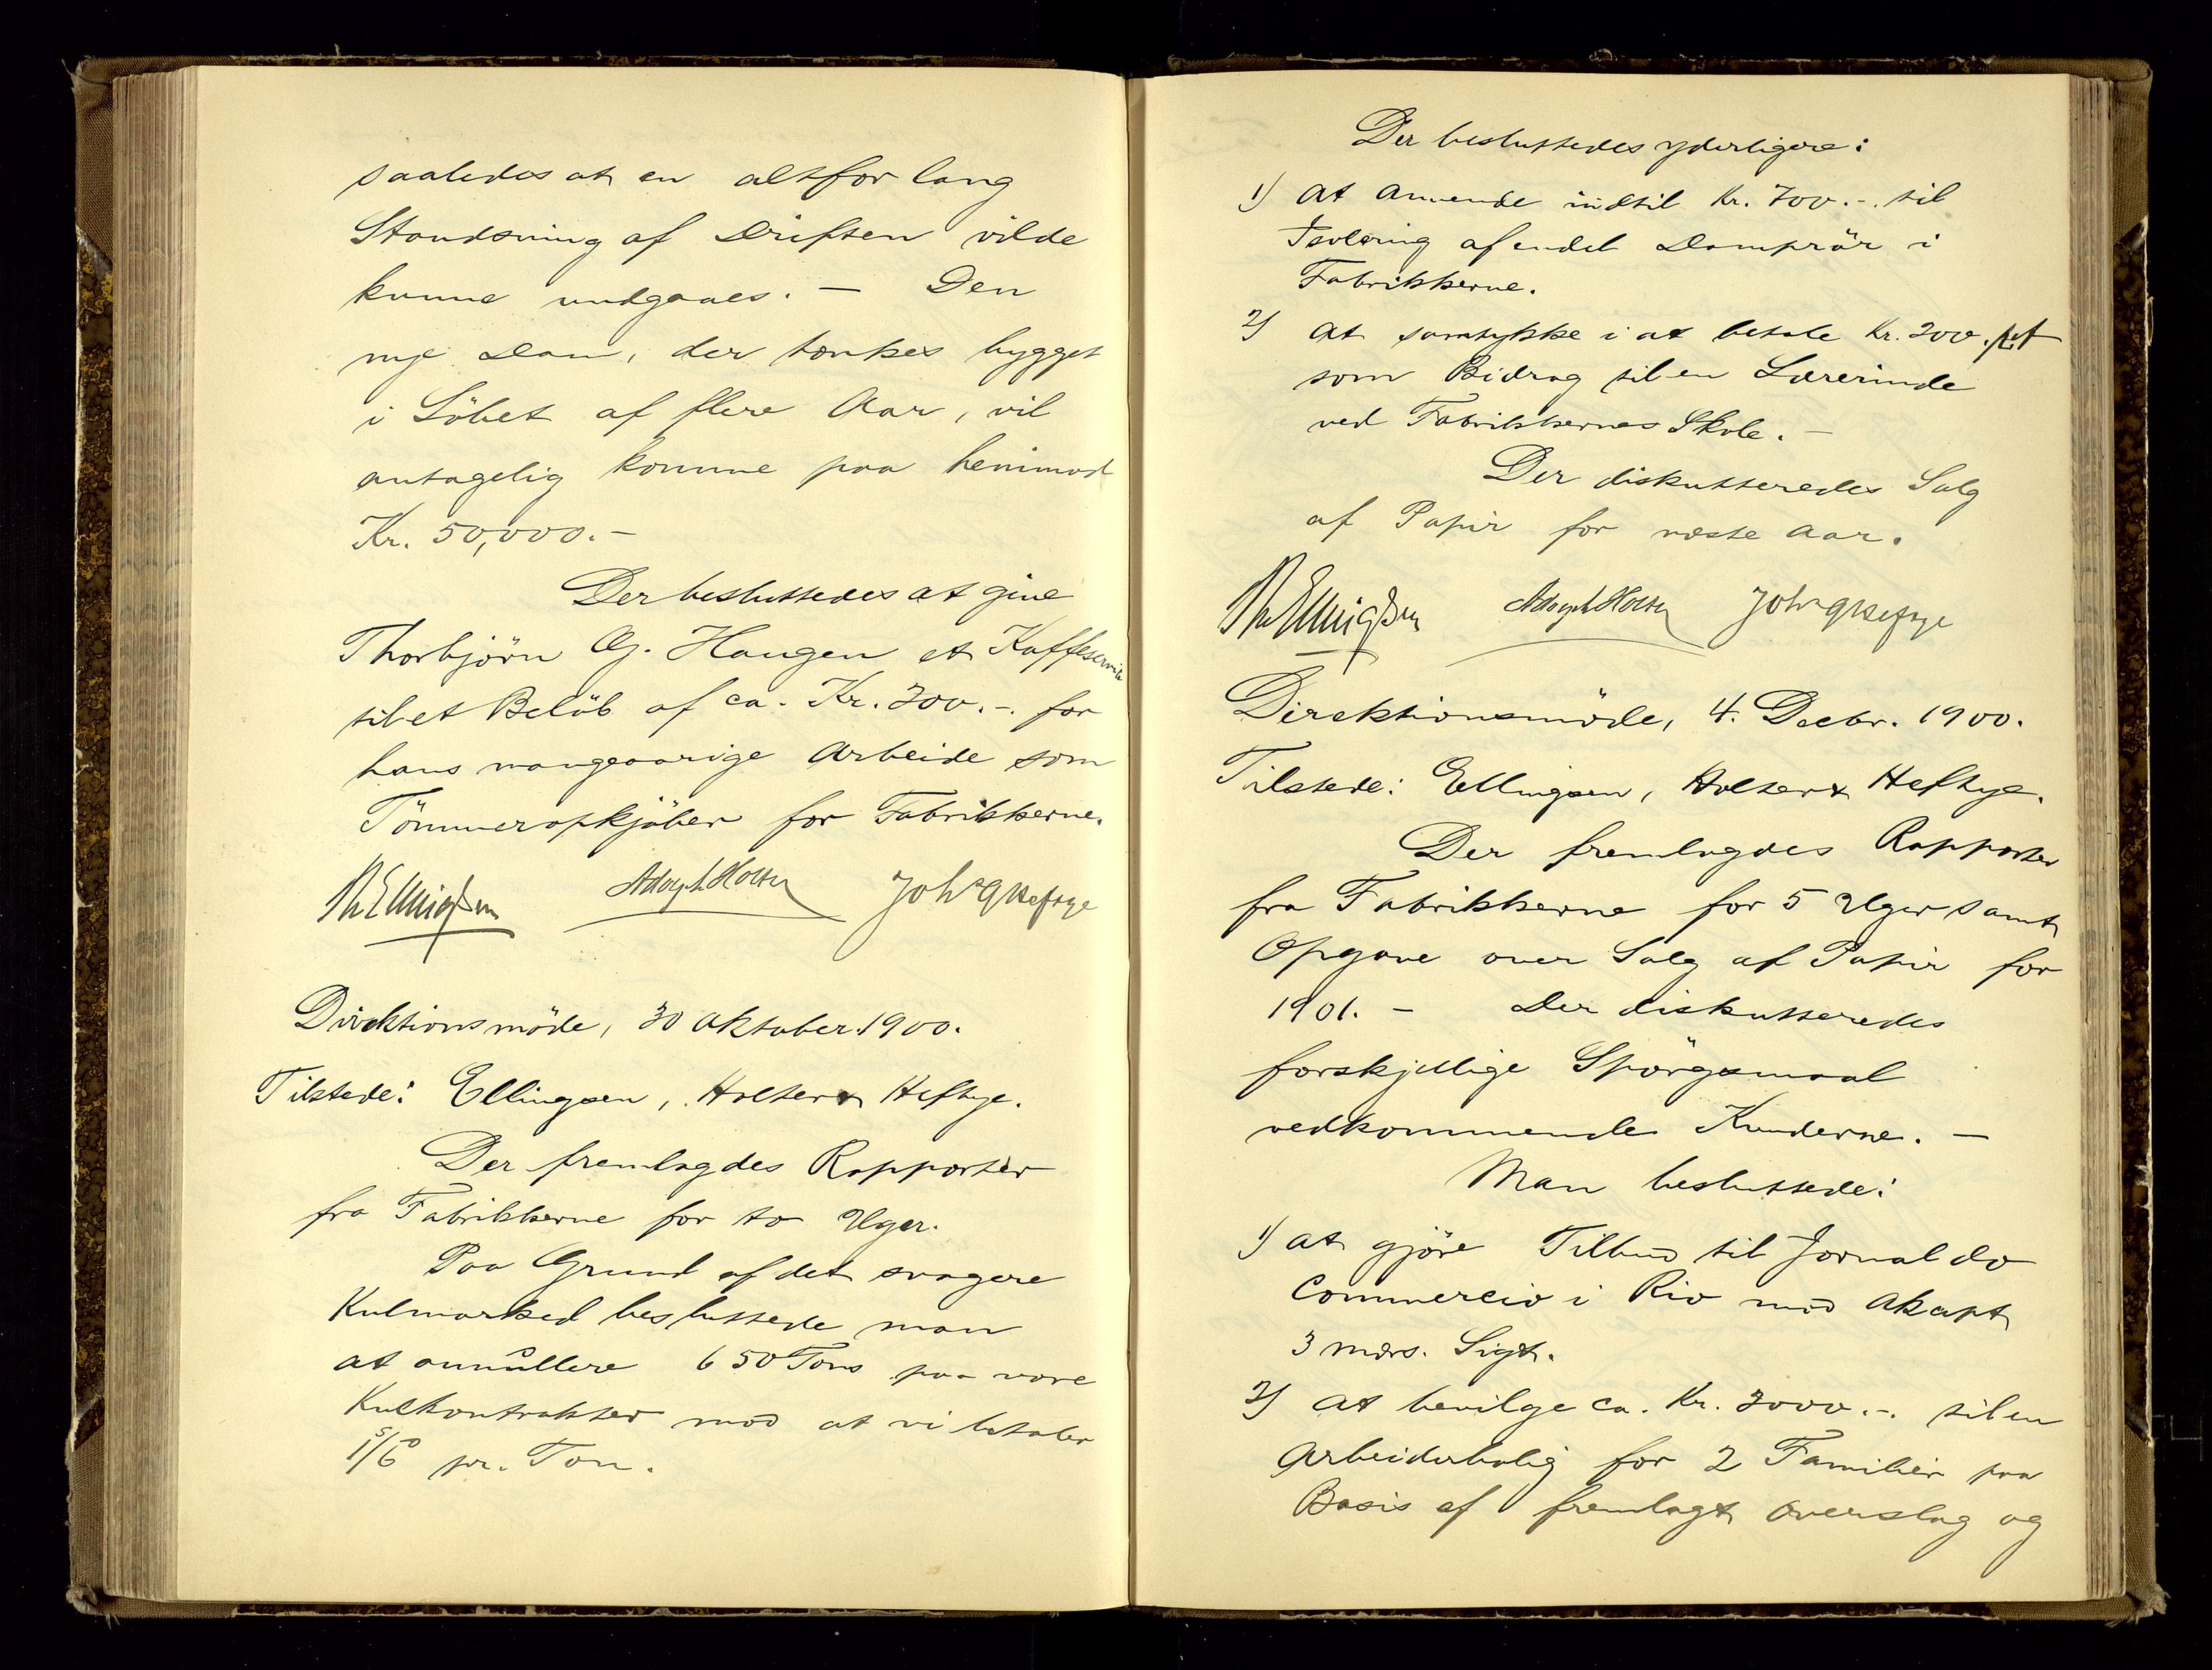 saaledes at en altfor lang
Standsning af Driften vilde
kunne undgaaes. — Den
nye Dam, der tænkes bygget
i Löbet af flere Aar, vil
antagelig komme paa henimod
Kr. 50,000.-
Der besluttedes at give
Thorbjörn Gj. Haugen et Kaffeservice
til et Belöb af ca. Kr. 300.-. for
hans mangeaarige Arbeide som
Tömmeropkjöber for Fabrikkerne.
Th Ellingsen Adolph Holter Johs G Heftye
Direktionsmöde, 30 Oktober 1900.
Tilstede: Ellingsen, Holter & Heftye.
Der fremlagdes Rapporter
fra Fabrikkerne for to Uger.
Paa Grund af det svagere
Kulmarked besluttede man
at annullere 650 Tons paa vore
Kulkontrakter mod at vi betaler
1/6 pr. Ton.
Der besluttedes yderligere:
1) at anvende indtil Kr. 700.-. til
Isolering af endel Damprör i
Fabrikkerne.
2) at samtykke i at betale Kr. 200.
som Bidrag til en Lærerinde
ved Fabrikkernes Skole. —
Der diskutteredes Salg
af Papir for næste Aar.
Th Ellingsen Adolph Holter Johs G Heftye
Direktionsmöde, 4. Decbr. 1900.
Tilstede: Ellingsen, Holter & Heftye.
Der fremlagdes Rapporter
fra Fabrikkerne for 5 Uger samt
Opgave over Salg af Papir for
1901. — Der diskutteredes
forskjellige Spörgsmaal
vedkommende Kunderne. —
Man besluttede:
1) at gjöre Tilbud til Jornal do
Commercio i Rio mod Akcept
3 mdrs. Sigt.
2) at bevilge ca. Kr. 3000.-. til en
Arbeiderbolig for 2 Familier paa
Basis af fremlagt Overslag og